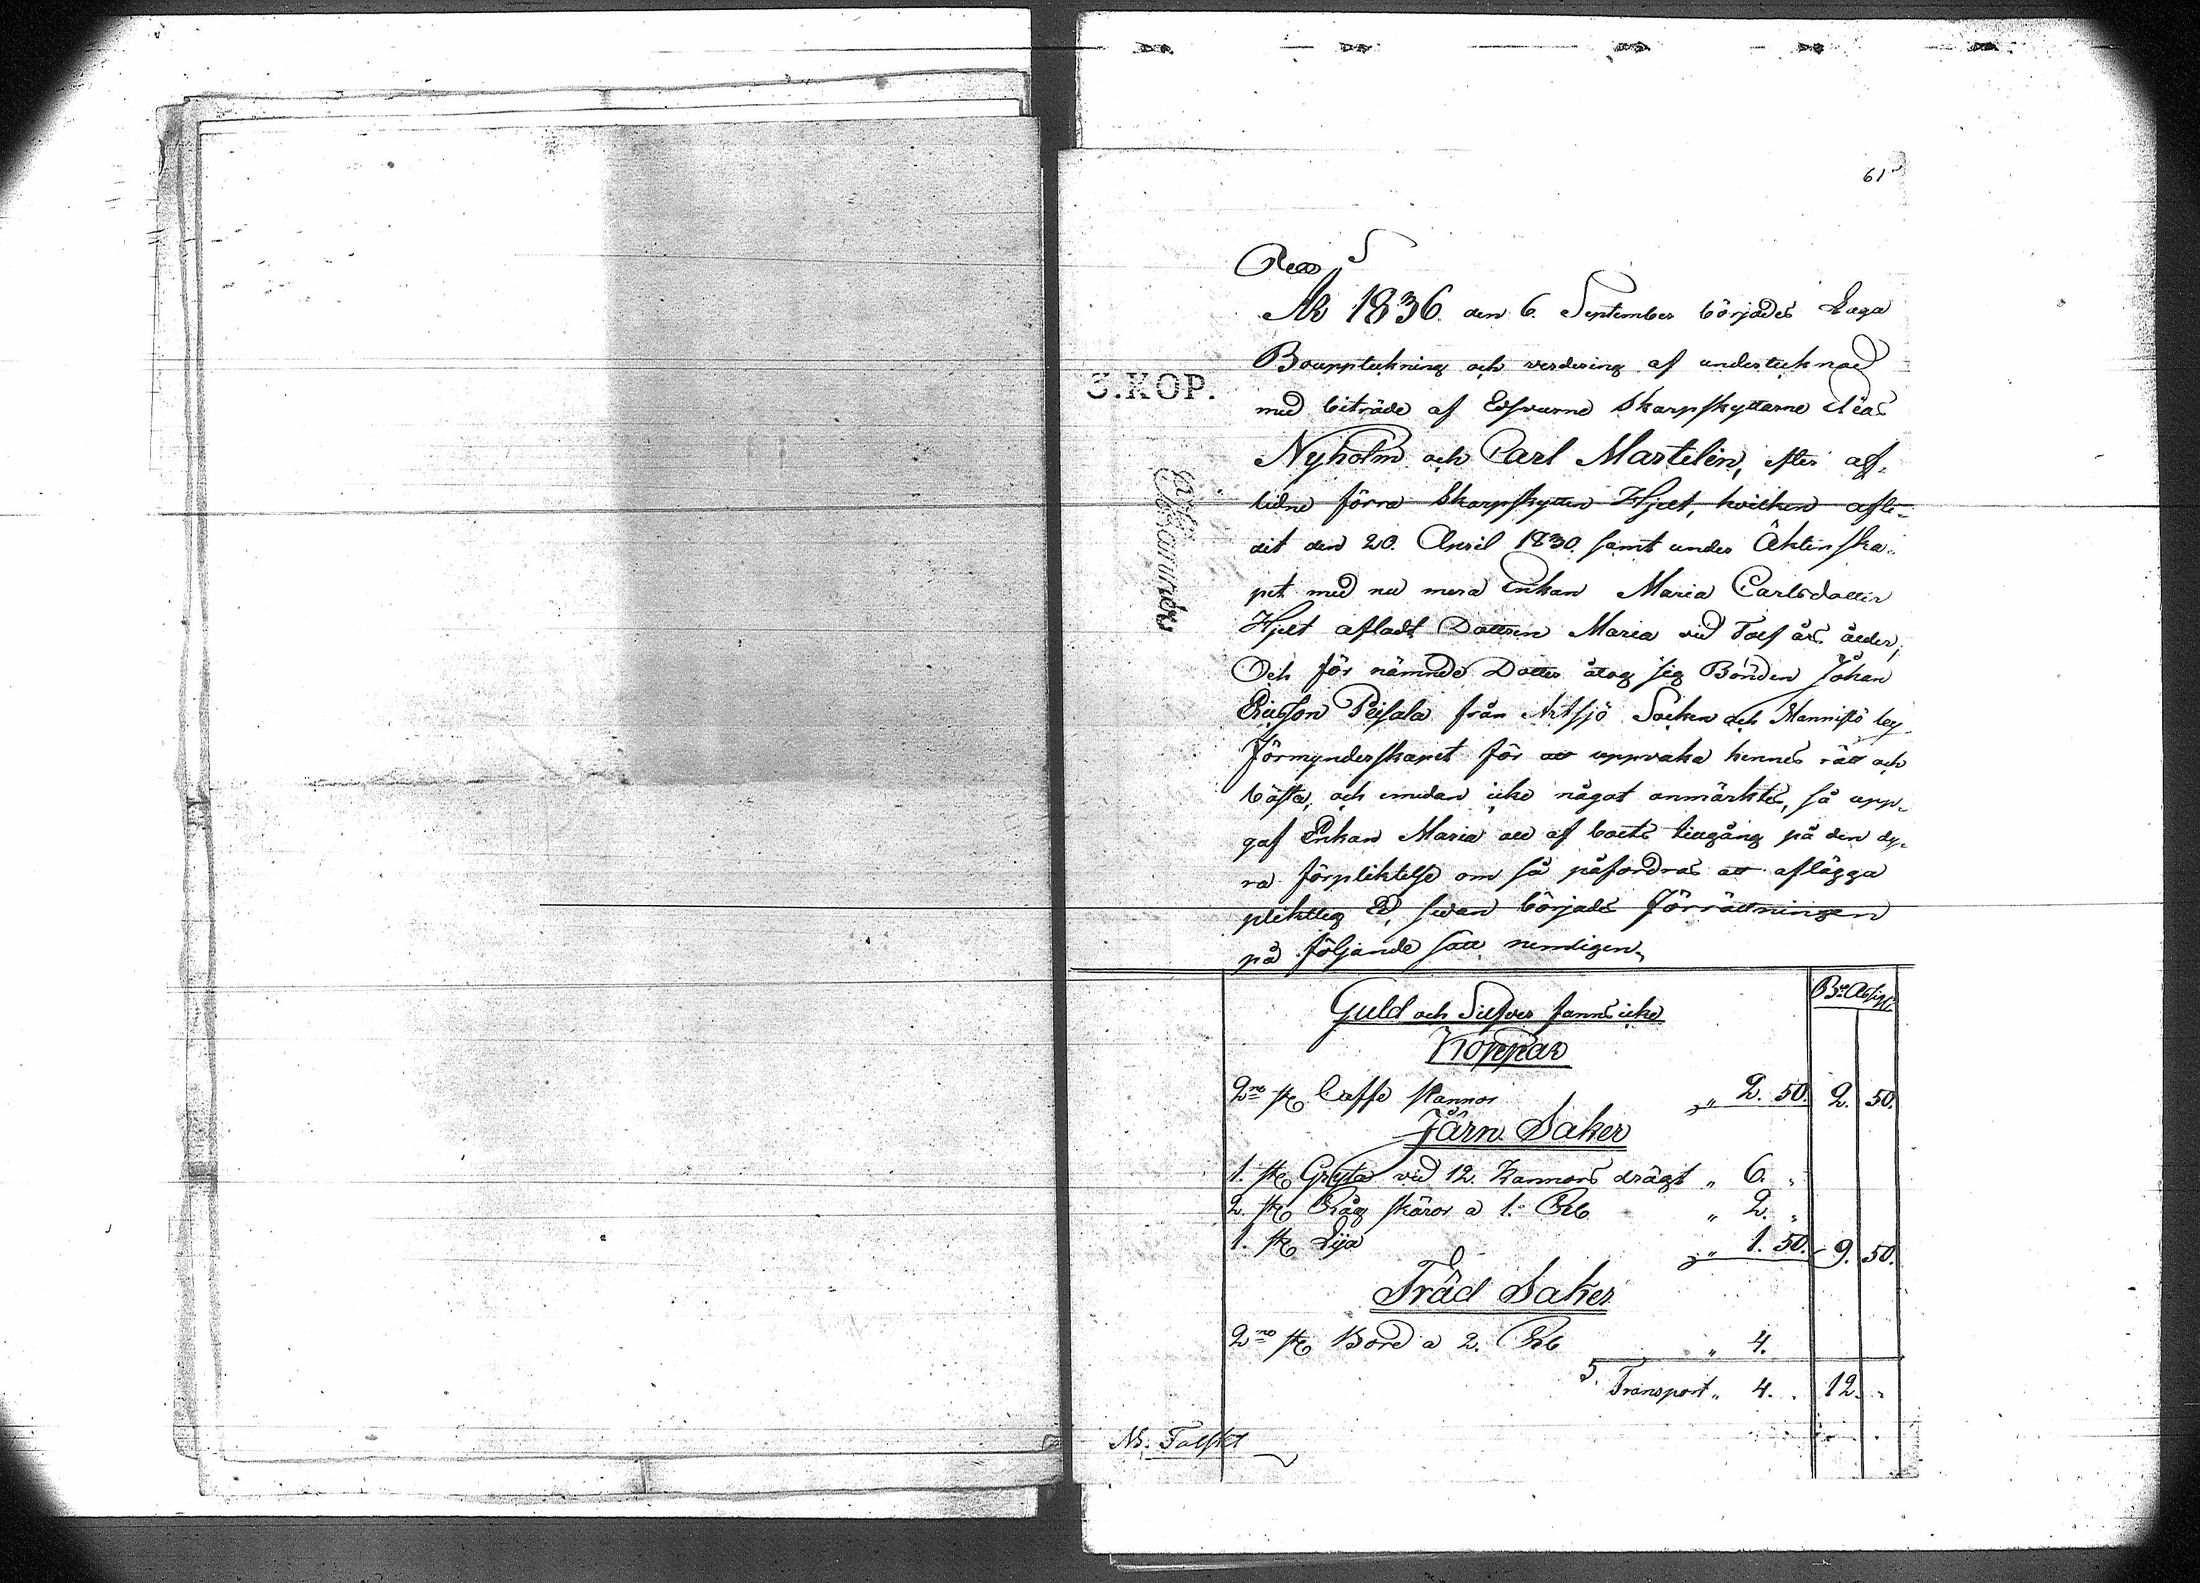 61
År 1836. den 6. September börjades Laga
Bouppteckning och verdering af undertecknad
med biträde af Edsvurne Skarpskyttarne
Nyholm och Carl Martelin, efter af-
lidne förra Skarpskytten Hjelt, hvilken afli-
dit den 20. April 1830. samt under Äktenska-
pet med nu mera Enkan Maria Carlsdotter
Hjelt afladt Dottren Maria vid Tolf års ålder,
Och för nämnde Dotter åtog sig Bonden Johan
Ericsson Peisala från Artsjö Socken och Mannistö by
Förmynderskapet för att uppvaka hennes rätt och
bästa, och emedan icke något anmärktes, så upp-
gaf Enkan Maria all af boets tillgång på den dy-
ra förpliktelse om så påfordras att aflägga
pliktlig Ed, sedan börjads Förrättningen
på följande sätt nemligen,
3.KOP.
Guld och Silfver fanns icke
Koppar
2ne st Caffe Pannor " 2. 50. 2. 50.
Järn Saker
1. st Gryta vid 12. Kannors drägt " 6. "
2. st Råg skäror a 1. Rb " 2. "
1. st Lija " 1. 50. 9. 50.
Träd Saker
2ne st Bord a 2. Rb " 4.
Transport " 4. " 12. "